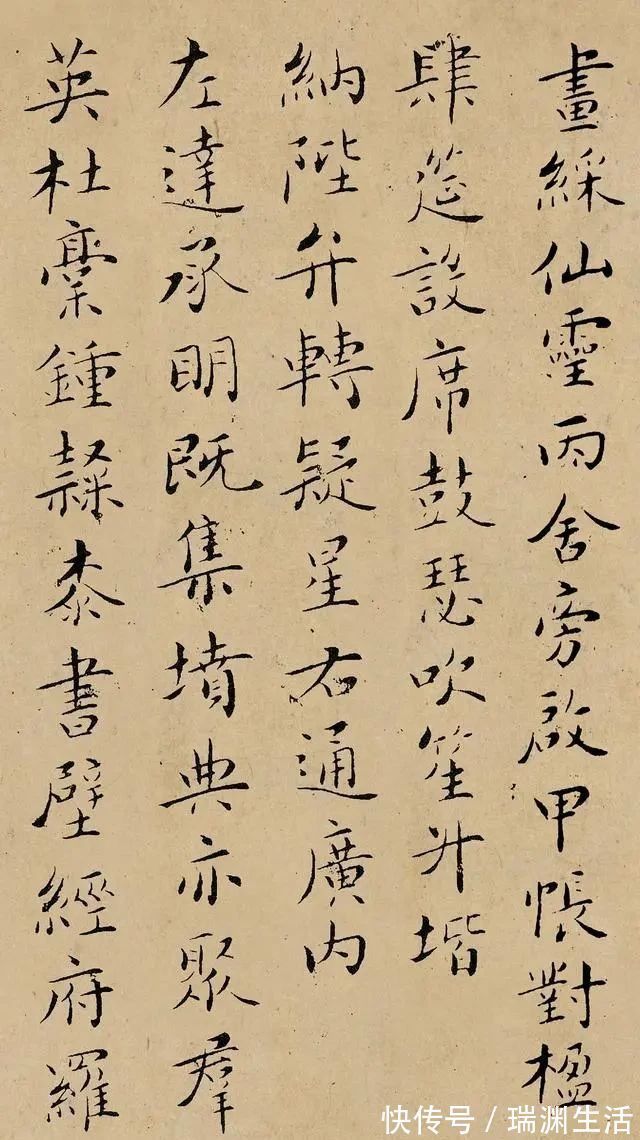 畫綵仙靈丙舍傍啟甲帳對楹
肆筵設席鼓瑟吹笙升堦
納陛弁轉疑星右通廣内
左達承明既集墳典亦聚群
英杜稾鍾隸漆書壁經府羅
快传号／瑞渊生活